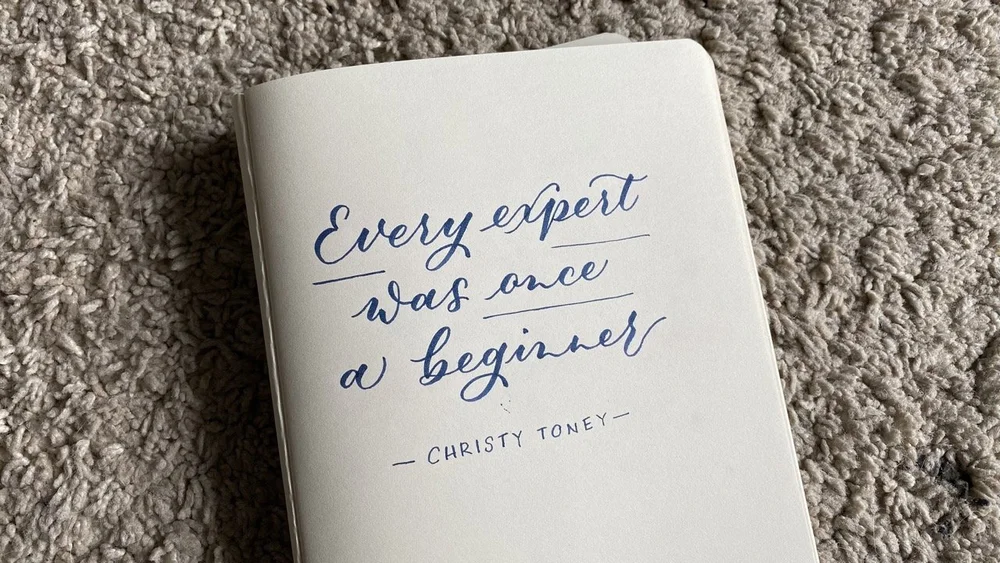 Every expert
was once
a beginner
— CHRISTY TONEY —